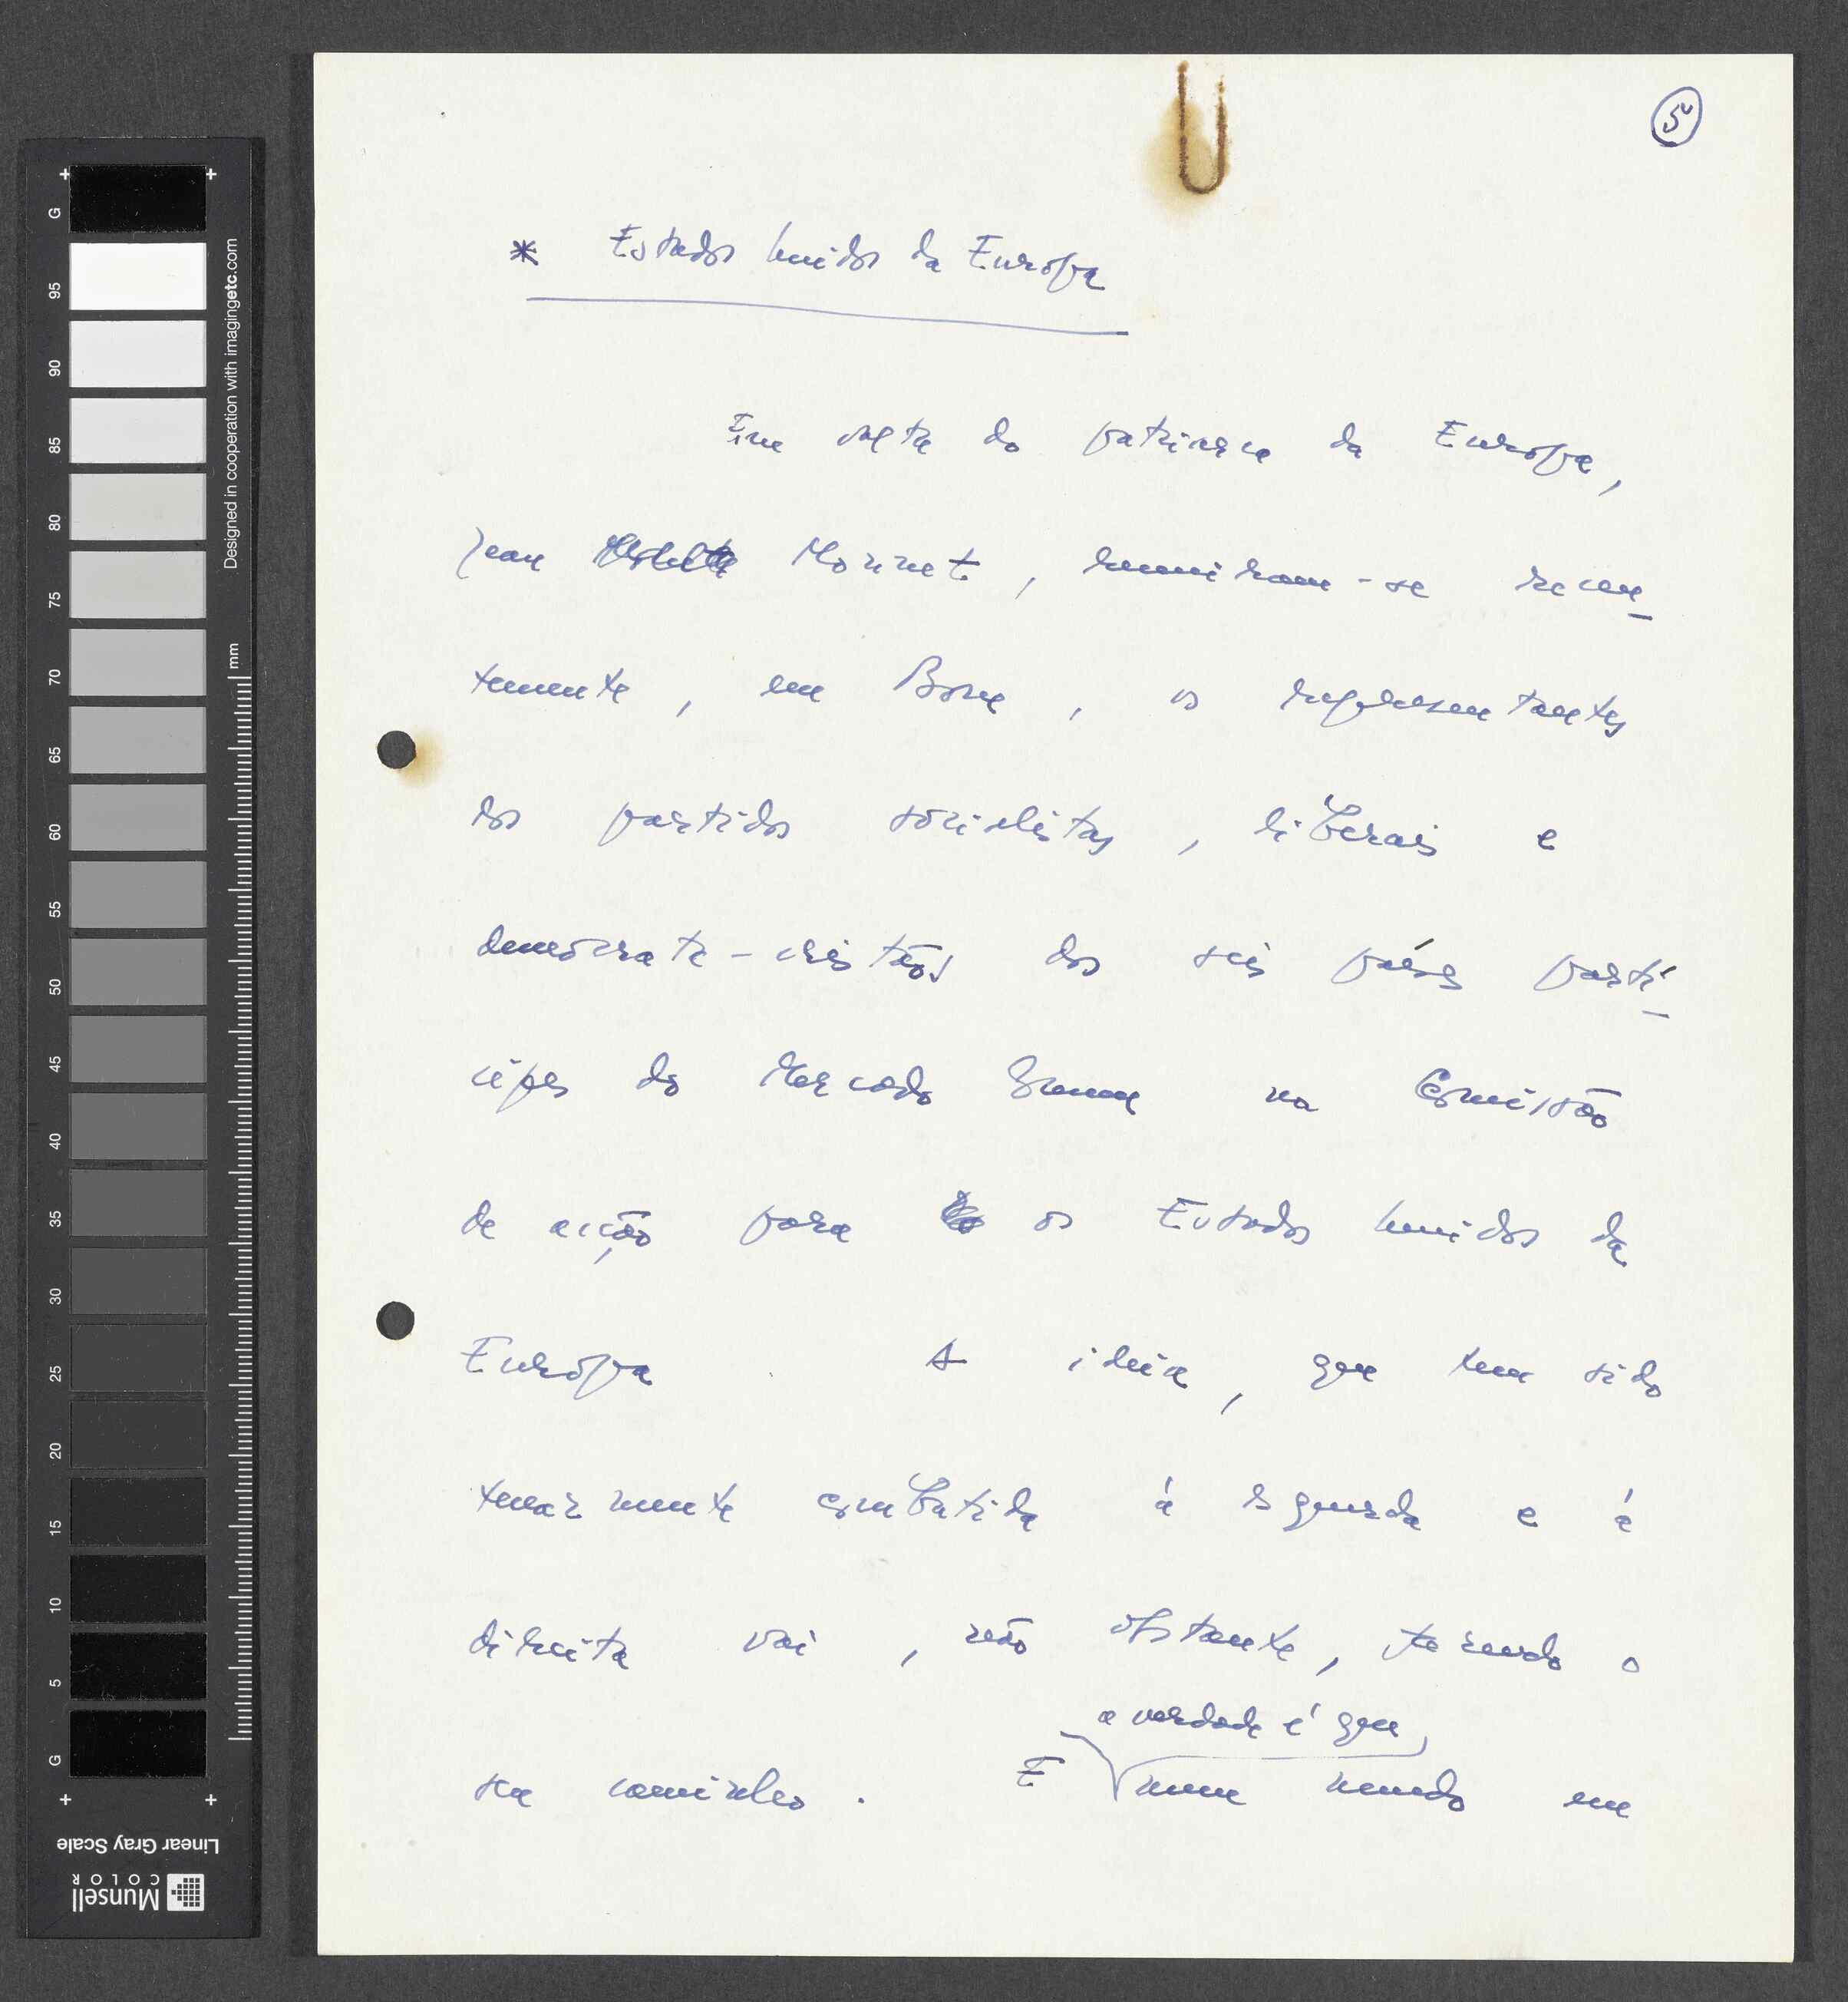 5
* Estados Unidos da Europa
Em volta do patriarca da Europa,
Jean Monnet, reuniram-se recen-
temente, em Bona, os representantes
dos partidos socialistas, liberais e
democrata-cristãos dos seis países parti-
cipes do Mercado Comum na Comissão
de acção para os Estados Unidos da
Europa. A ideia, que tem sido
tenazmente combatida à esquerda e à
direita vai, não obstante, fazendo o
seu caminho. E
a verdade é que,
num mundo em
G
95
90
85
80
75
70
65
60
55
50
45
40
35
30
25
20
15
10
5
G
Designed in cooperation with imagingetc.com
mm
Linear Gray Scale
Munsell
COLOR